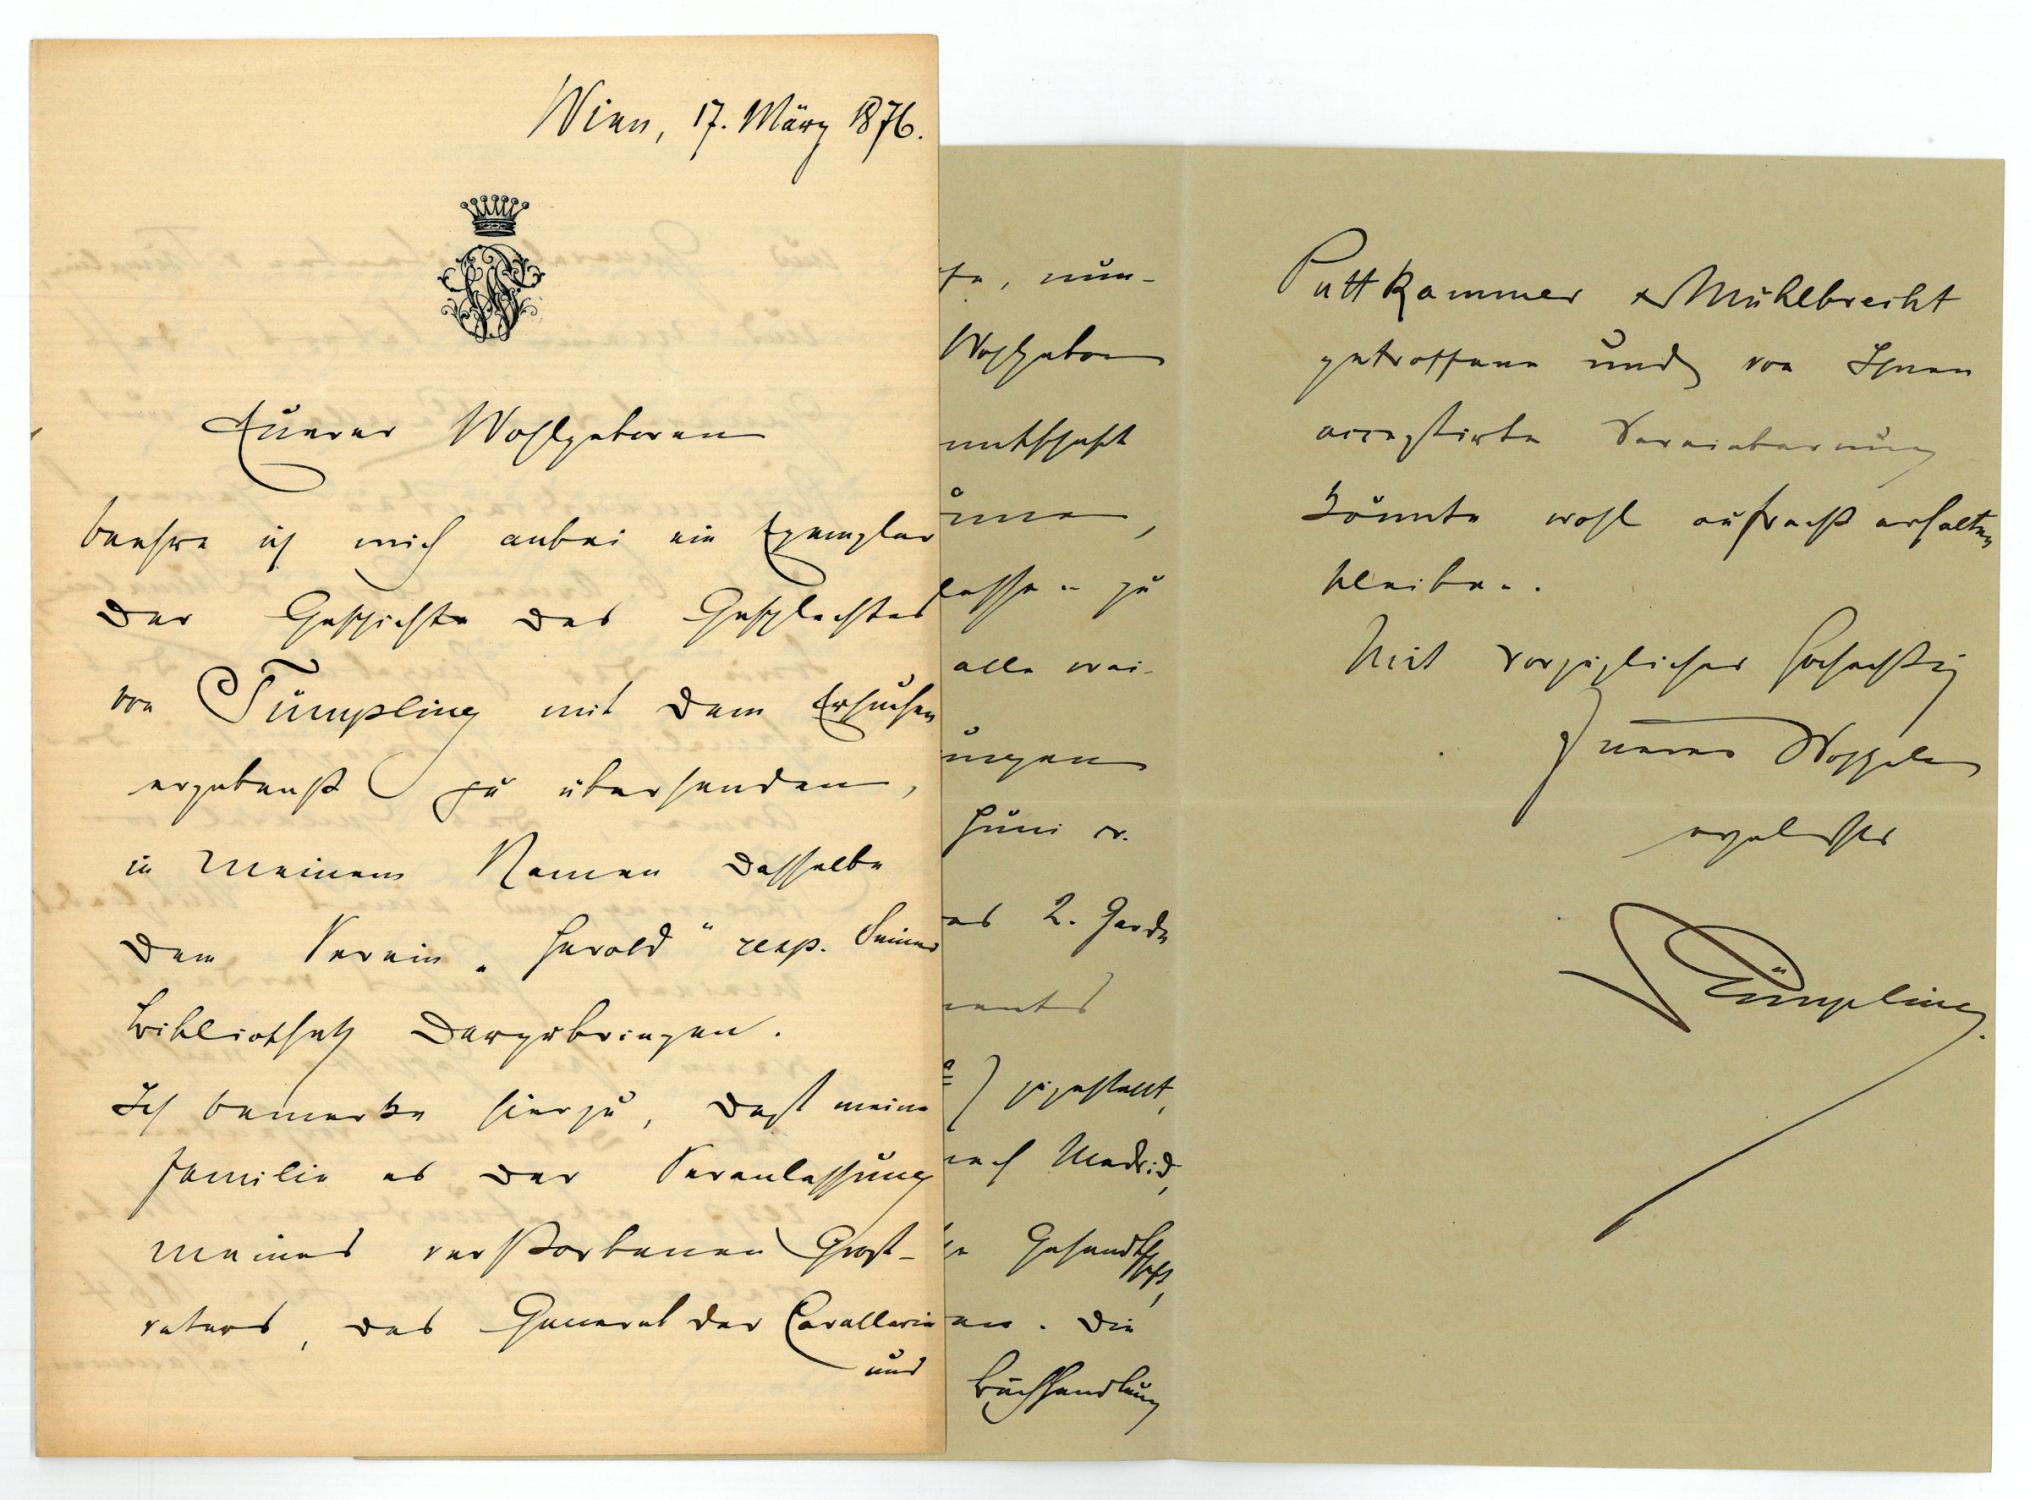 Wien, 17. März 1876.
Euerer Wohlgeboren
beehre ich mich anbei ein Exemplar
der Geschichte des Geschlechtes
von Tümpling mit dem Ersuchen
ergebenst zu übersenden,
in meinem Namen dasselbe
dem Verein „Herold" resp. seiner
Bibliothek darzubringen.
Ich bemerke hierzu, daß meine
Familie es der Veranlassung
meines verstorbenen Groß-
vaters, des General der Cavallerie
und
nun-
Wohlgeboren
lassen zu
alle wei-
ungen
Juni cr.
2. Garde
ments
) zugestellt,
nach Madrid,
Gesandtschaft,
en. Die
Buchhandlung
Puttkammer & Mühlbrecht
getroffene und von Ihnen
acceptirte Vereinbarung
könnte wohl aufrecht erhalten
bleiben.
Mit vorzüglicher Hochachtung
Euerer Wohlgeboren
ergebenster
vTümpling.